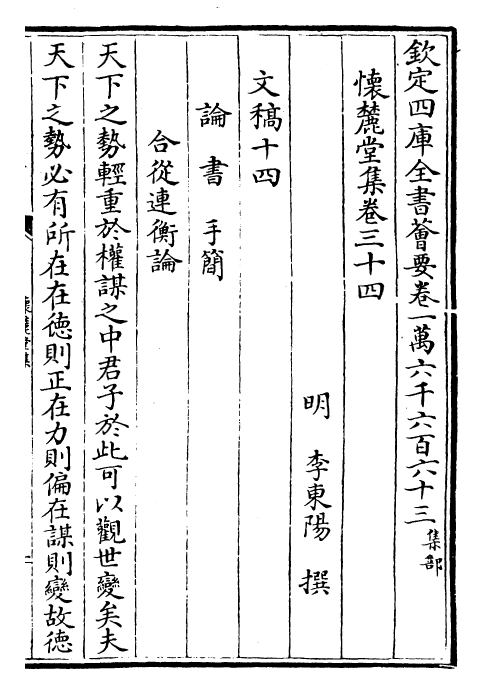 欽定四庫全書薈要卷一萬六千六百六十三集部
懷麓堂集卷三十四
明 李東陽 撰
文稿十四
論 書 手簡
合從連衡論
天下之勢輕重於權謀之中君子於此可以觀世變矣夫
天下之勢必有所在在德則正在力則偏在謀則變故德